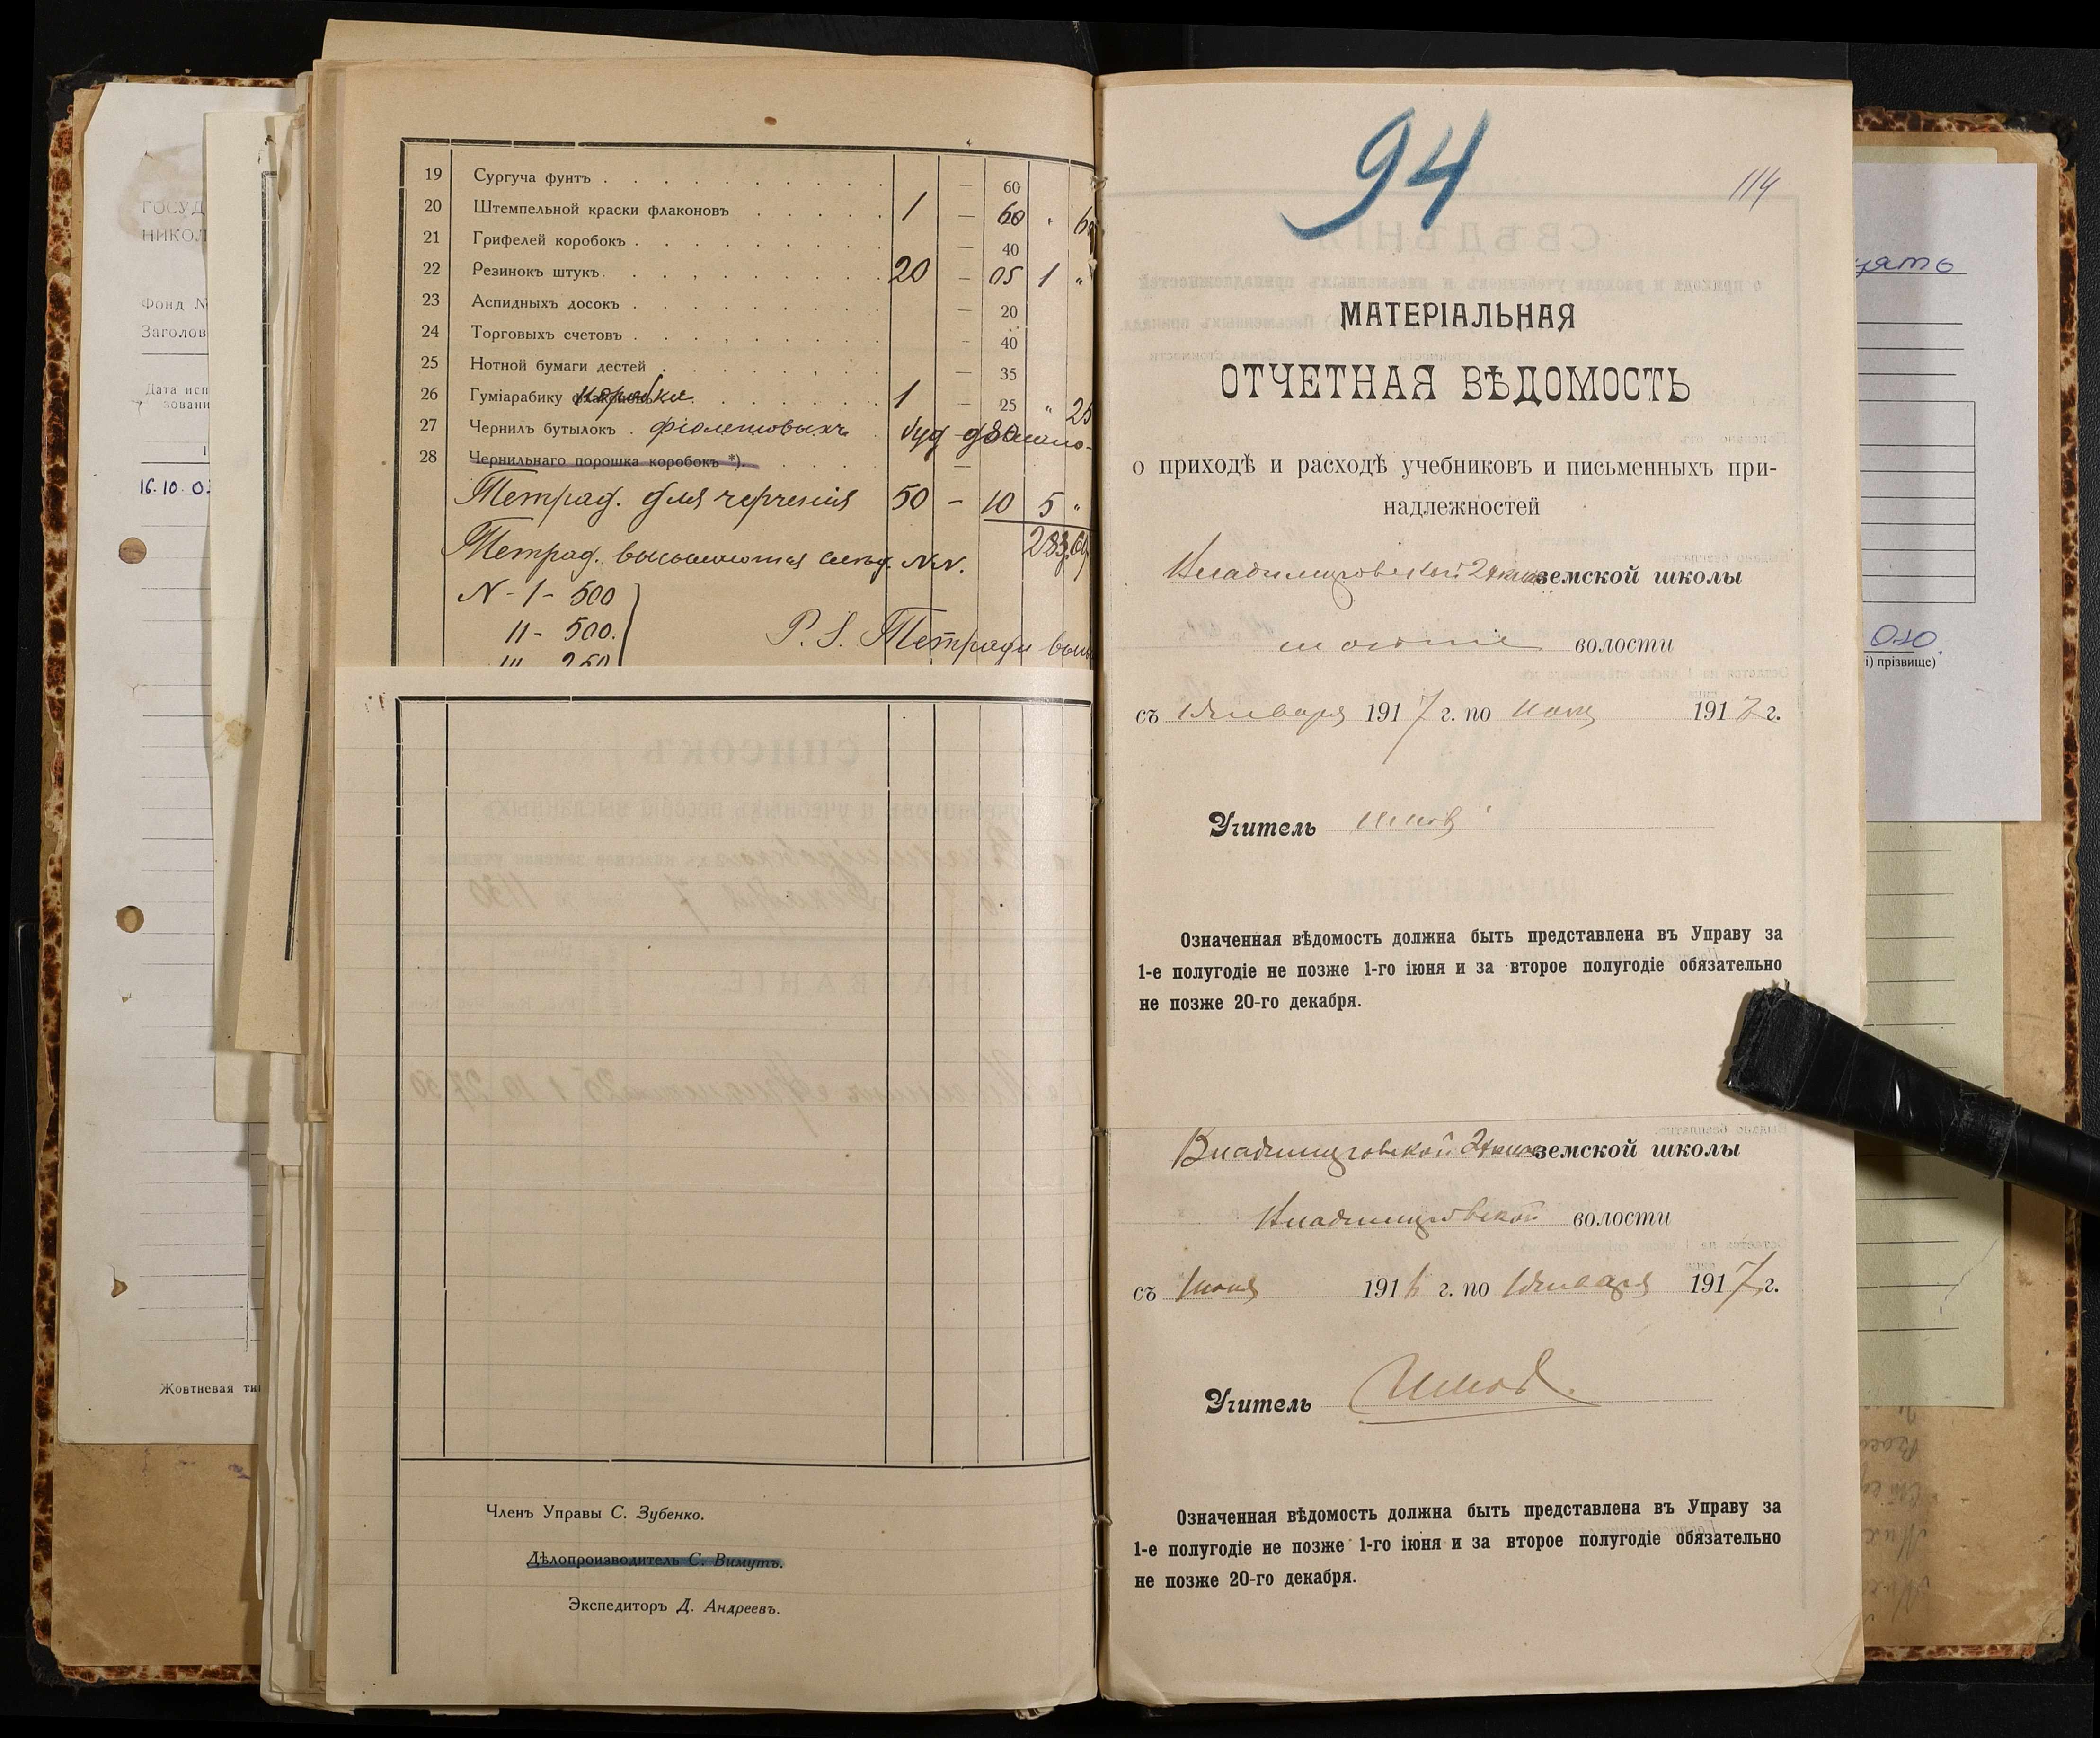 19 Сургуча фунтъ — 60
20 Штемпельной краски флаконовъ 1 — 60 " 60
21 Грифелей коробокъ — 40
22 Резинокъ штукъ 20 — 05 1 "
23 Аспидныхъ досокъ — 20
24 Торговыхъ счетовъ — 40
25 Нотной бумаги дестей — 35
26 Гуміарабику коробка 1 — 25 " 25
27 Чернилъ бутылокъ фіолетовыхъ буд — 80
28 Чернильнаго порошка коробокъ *). —
Тетрад. для черченія 50 — 10 5 "
Тетрад. высылаются след. N.N.
N - 1 - 500
II - 500.
III 250
P. S. Тетради
Членъ Управы С. Зубенко.
Дѣлопроизводитель С. Вимутъ.
Экспедиторъ Д. Андреевъ.
94
114
МАТЕРІАЛЬНАЯ
ОТЧЕТНАЯ ВѢДОМОСТЬ
о приходѣ и расходѣ учебниковъ и письменныхъ при-
надлежностей
Владимировской 2х клас земской школы
волости
съ Января 1917 г. по 1917 г.
Учитель
Означенная вѣдомость должна быть представлена въ Управу за
1-е полугодіе не позже 1-го іюня и за второе полугодіе обязательно
не позже 20-го декабря.
Владимировской 2х клас земской школы
Владимировской волости
съ Іюня 1916 г. по Января 1917 г.
Учитель
Означенная вѣдомость должна быть представлена въ Управу за
1-е полугодіе не позже 1-го іюня и за второе полугодіе обязательно
не позже 20-го декабря.
ГОСУД
НИКОЛ
Фонд №
Заголов
Дата исп
зовани
16.10.0
Жовтневая ти
і) прізвище)